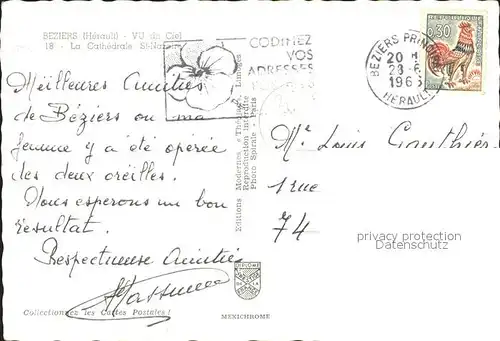 BEZIERS (Hérault) - VU du Ciel
18 - La Cathédrale St-Nazaire
Meilleures Amitiés
de Béziers ou ma
femme y a été opérée
des deux oreilles.
Nous esperons un bon
résultat.
Respectueuse Amitié
Collectionnez les Cartes Postales !
CODIFIEZ
VOS
ADRESSES
Editions Modernes « Théojac » Limoges
Reproduction Interdite
Photo Spirale - Paris
DIPLOME
MEXICHROME
BEZIERS PRINCIPAL
20 H
23-6
196
HERAULT
0,30
Mr Louis Gauthier
1 rue
74
privacy protection
Datenschutz